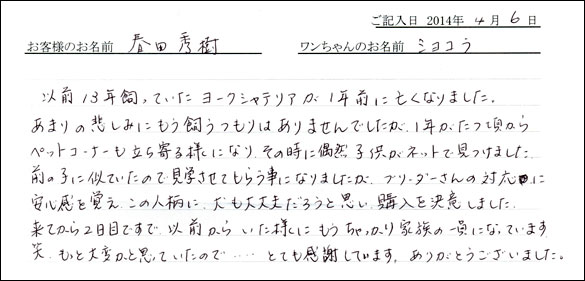 ご記入日 2014年 4月 6日
お客様のお名前 春田 秀樹 ワンちゃんのお名前 ショコラ
以前13年飼っていたヨークシャテリアが1年前に亡くなりました。
あまりの悲しみにもう飼うつもりはありませんでしたが、1年がたつ頃から
ペットコーナーも立ち寄る様になり、その時に偶然子供がネットで見つけました
前の子に似ていたので見学させてもらう事になりましたが、ブリーダーさんの対応に
安心感を覚え、この人柄に、犬も大丈夫だろうと思い、購入を決意しました。
来てから2日目ですで、以前からいた様にもうちゃっかり家族の一員になっています
笑、もっと大変かと思っていたので‥‥‥とても感謝しています。ありがとうございました。